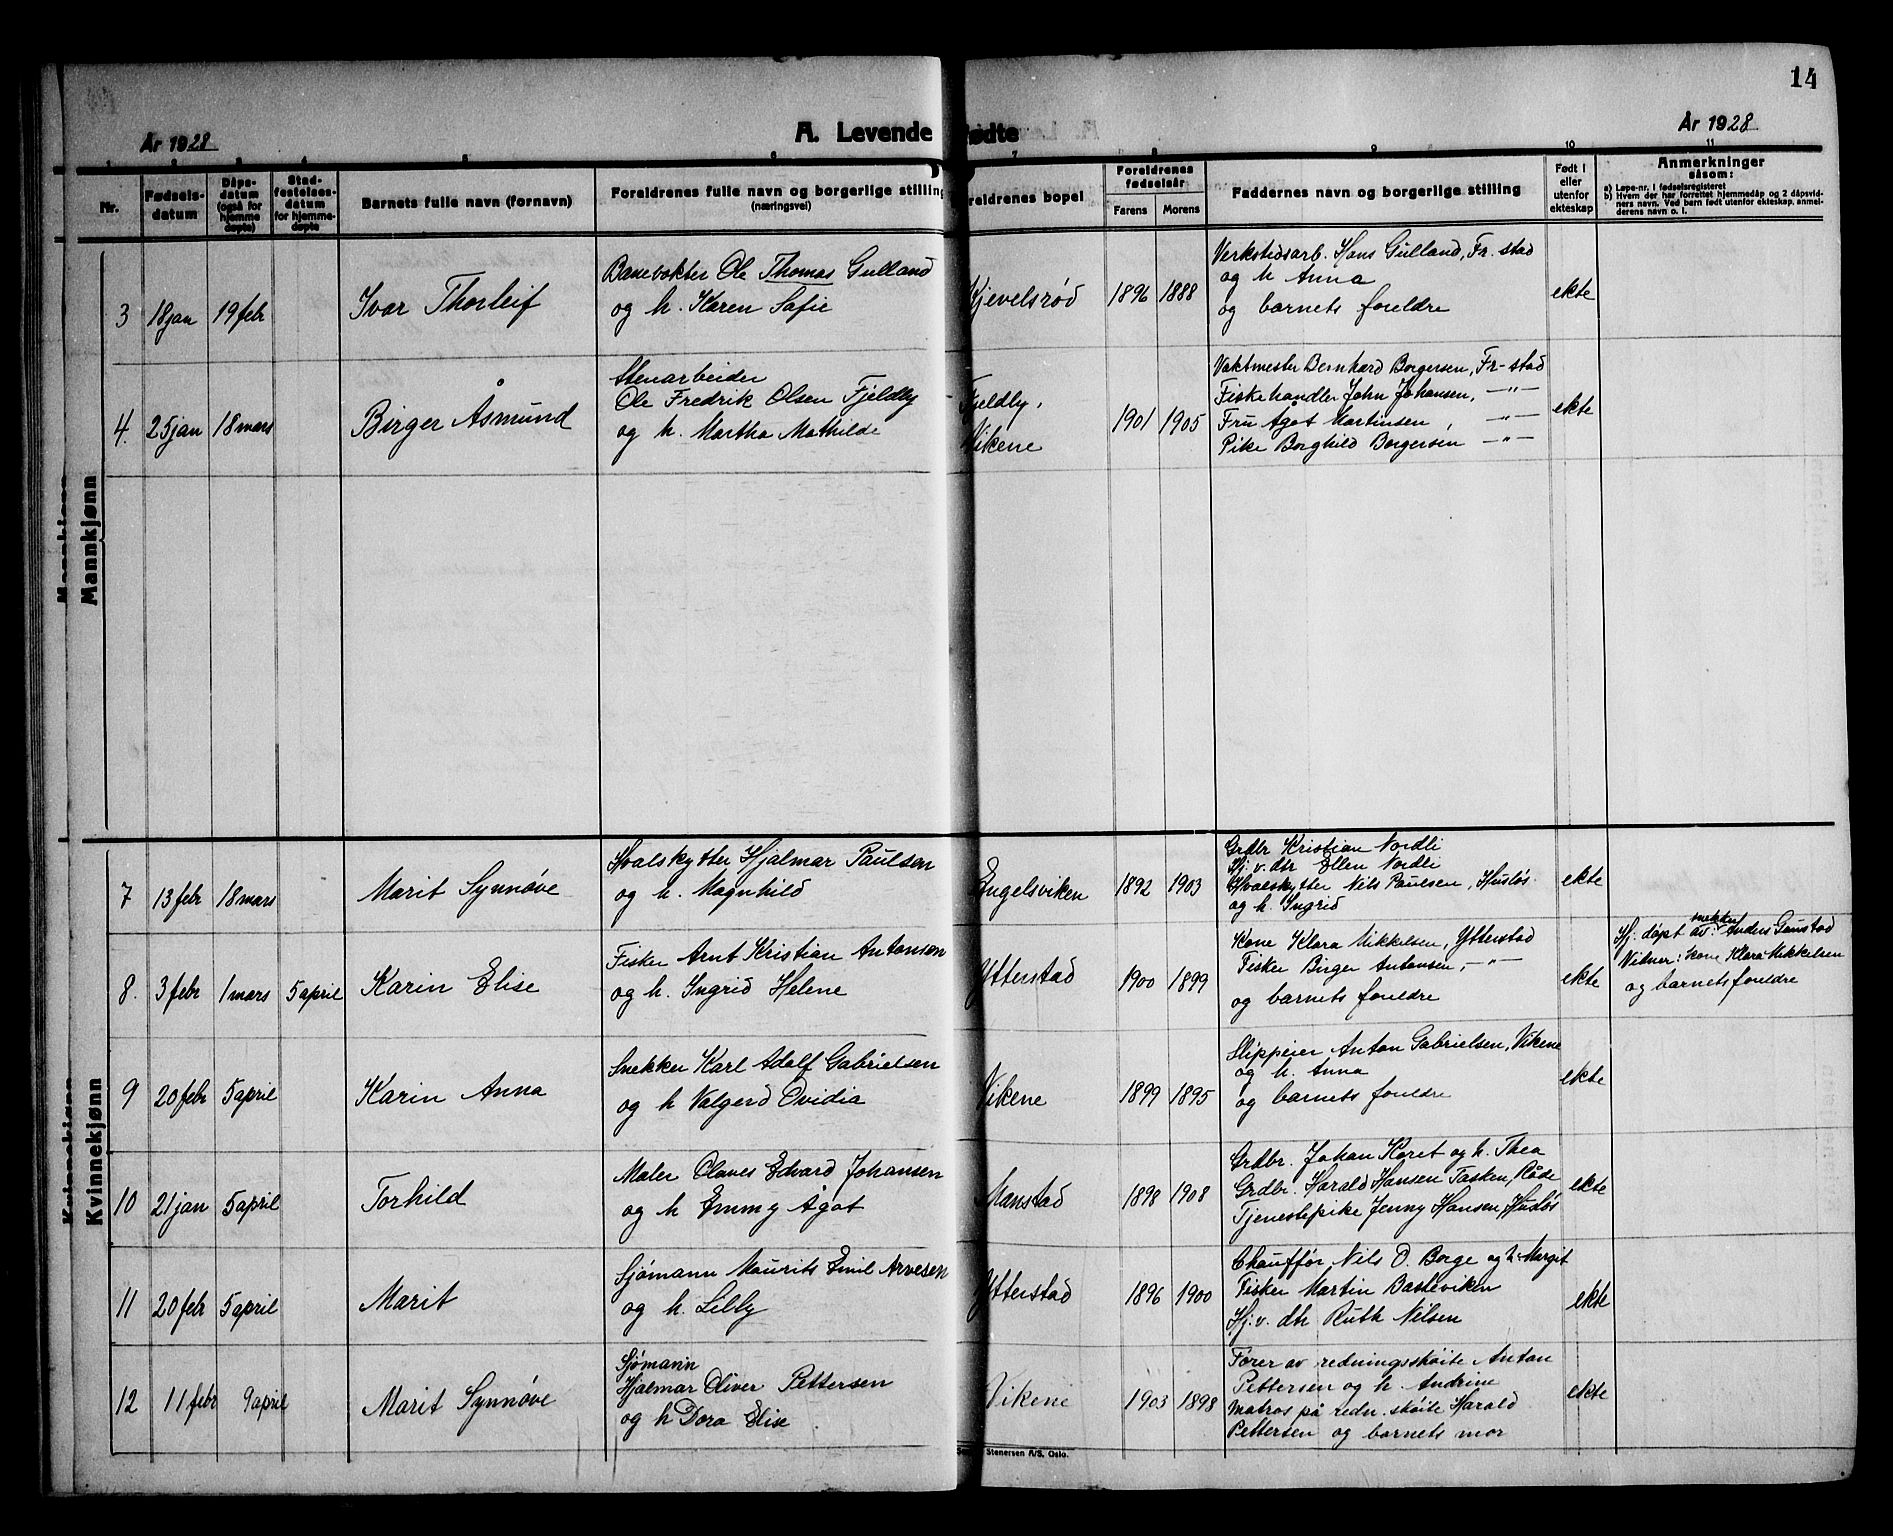 14
År 1928
A. Levende fødte
År 1928
1 2 3 4 5 6 7 8 9 10 11
Nr.
Fødselsdatum
Dåpsdatum (også for hjemmedøpte)
Stadfestelsesdatum for hjemmedøpte
Barnets fulle navn (fornavn)
Foreldrenes fulle navn og borgerlige stilling
(næringsvei)
Foreldrenes bopel
Foreldrenes fødselsår
Farens Morens
Faddernes navn og borgerlige stilling
Født i eller utenfor ekteskap
Anmerkninger
såsom:
a) Løpe-nr. i fødselsregisteret
b) Hvem der har forrettet hjemmedåp og 2 dåpsvidners navn. Ved barn født utenfor ekteskap, anmelderens navn o. l.
Mannkjønn
3 18 jan 19 febr Ivar Thorleif
Banevokter Ole Thomas Gulland
og h. Karen Sofie
Kjevelsrød 1896 1888
Verkstedsarb. Hans Gulland, Fr. stad
og h Anna
og barnets foreldre
ekte
4. 25 jan 18 mars Birger Åsmund
Stenarbeider
Ole Fredrik Olsen Fjeldby
og h. Martha Mathilde
Fjeldby,
Vikene
1901 1905
Vaktmester Bernhard Borgersen, Fr-stad
Fiskehandler John Johansen, —"—
Fru Ågot Martinsen, —"—
Pike Borghild Borgersen —"—
ekte
Kvinnekjønn
7 13 febr 18 mars Marit Synnøve
Hvalskytter Hjalmar Paulsen
og h. Magnhild
Engelsviken 1892 1903
Grdbr Kristian Nordli
Hj. v. dtr Ellen Nordli
Hvalskytter Nils Paulsen, Husløs
og h. Ingrid
ekte
8. 3 febr 1 mars 5 april Karin Elise
Fisker Arnt Kristian Antonsen
og h. Ingrid Helene
Ytterstad 1900 1899
Kone Klara Mikkelsen, Ytterstad
Fisker Birger Antonsen, —"—
og barnets foreldre
ekte
Hj. døpt av: snekker Anders Gaustad
Vitner: Kone Klara Mikkelsen
og barnets foreldre
9 20 febr 5 april Karin Anna
Snekker Karl Adolf Gabrielsen
og h Valgerd Ovidia
Vikene 1899 1895
Slippeier Anton Gabrielsen, Vikene
og h. Anna
og barnets foreldre
ekte
10 21 jan 5 april Torhild
Maler Olaves Edvard Johansen
og h Emmy Ågot
Manstad 1898 1908
Grdbr. Johan Koret og h. Thea
Grdbr. Harald Hansen Tasken, Råde
Tjenestepike Jenny Hansen, Husløs
ekte
11 20 febr 5 april Marit
Sjømann Maurits Emil Arvesen
og h. Lilly
Ytterstad 1896 1900
Chauffør Nils O. Borge og h. Margit
Fisker Martin Basteviken
Hj. v. dtr Ruth Nilsen
ekte
12 11 febr 9 april Marit Synnøve
Sjømann
Hjalmar Oliver Pettersen
og h Dora Elise
Vikene 1903 1898
Fører av redningsskøite Anton
Pettersen og h. Andrine
Matros på redn. skøite Harald
Pettersen og barnets mor
ekte
Stenersen A/S, Oslo.